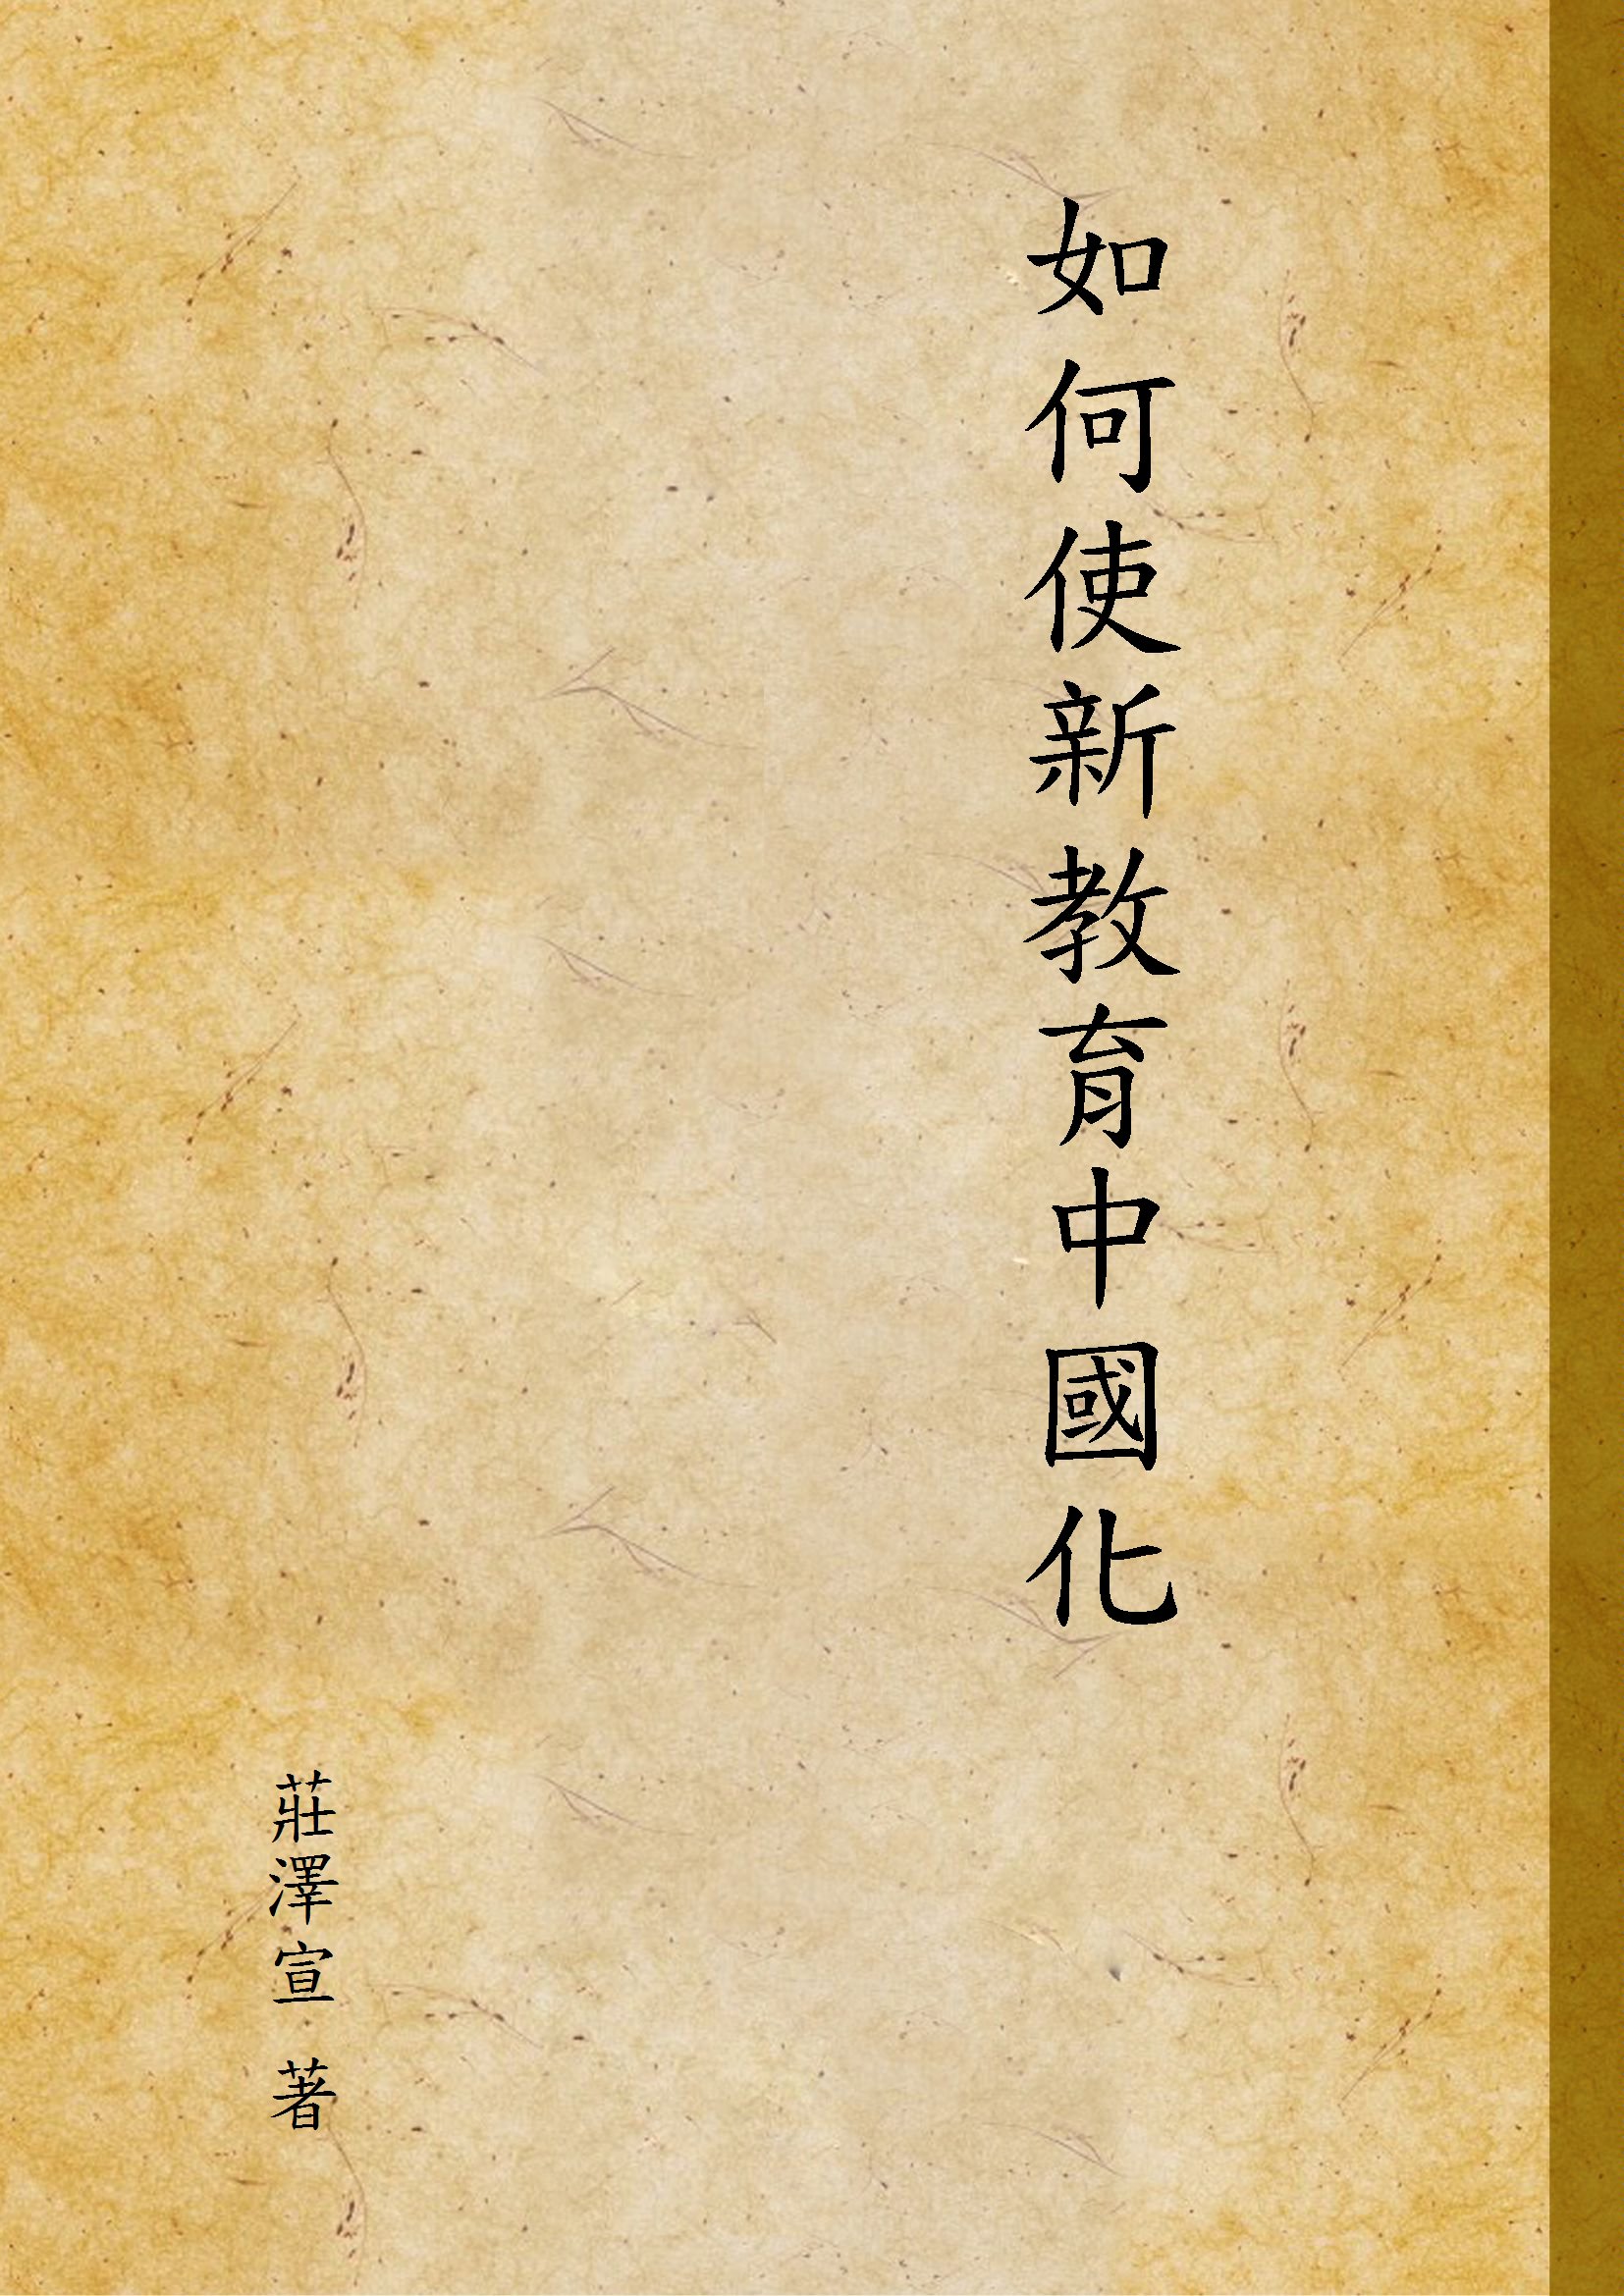 如何使新教育中國化
莊澤宣 著